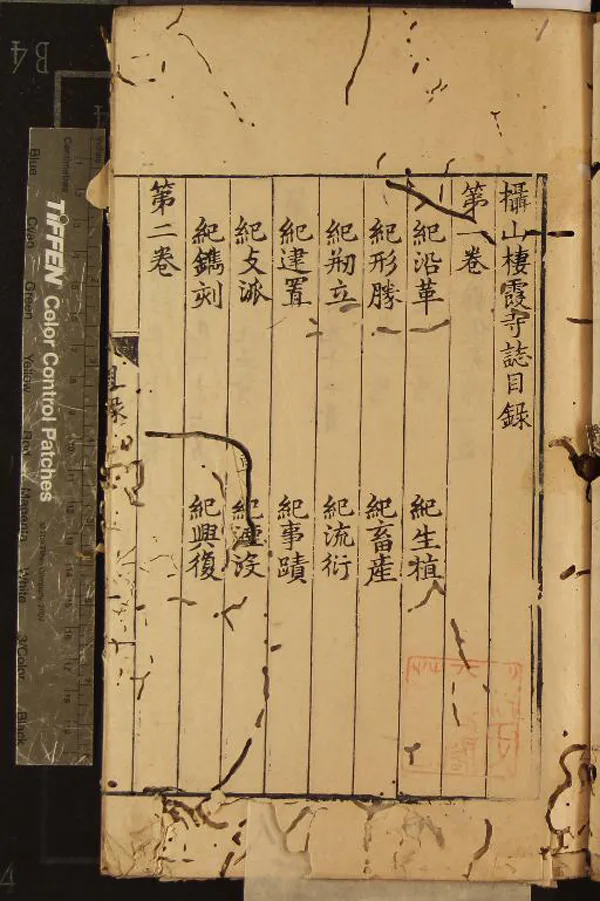 攝山棲霞寺誌目錄
第一卷
紀沿革 紀生植
紀形勝 紀畜產
紀刱立 紀流衍
紀建置 紀事蹟
紀支派 紀湮沒
紀鐫刻 紀興復
第二卷
目錄
TIFFEN Color Control Patches
Centimetres
Blue Cyan Green Yellow Red Magenta White 3/Color Black
B4